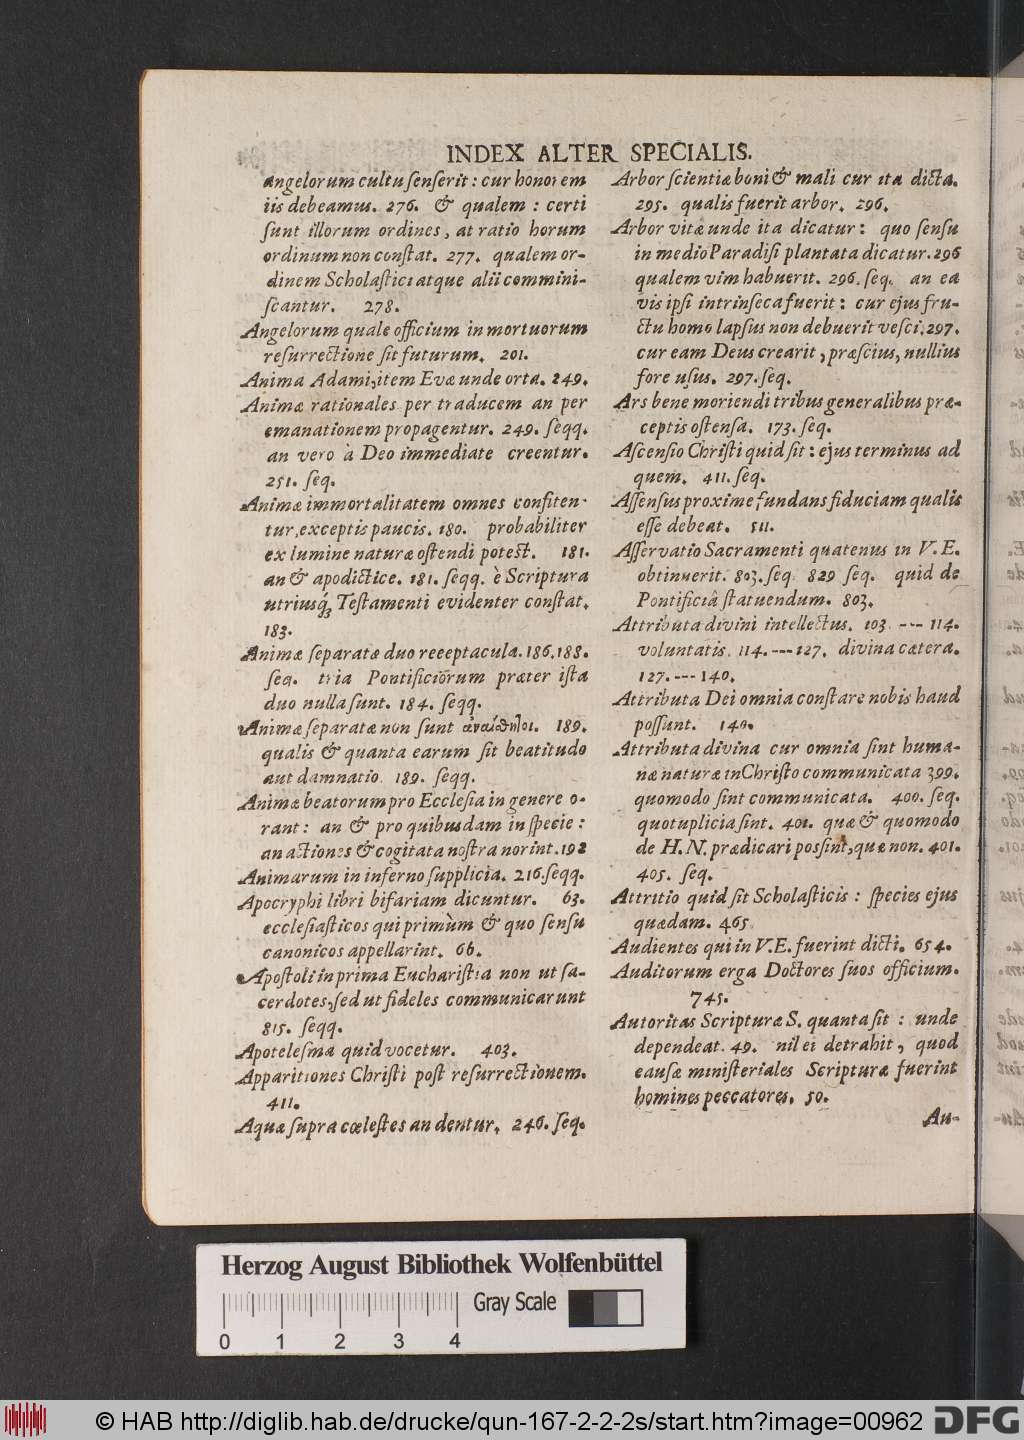 INDEX ALTER SPECIALIS.
angelorum cultu ſenſerit: cur honorem
iis debeamus. 276. & qualem: certi
ſunt illorum ordines, at ratio horum
ordinum non conſtat. 277. qualem or-
dinem Scholaſtici atque alii commini-
ſcantur. 278.
Angelorum quale officium in mortuorum
reſurrectione ſit futurum. 201.
Anima Adami, item Evæ unde orta. 249.
Animæ rationales per traducem an per
emanationem propagentur. 249. ſeqq.
an vero à Deo immediate creentur.
251. ſeq.
Animæ immortalitatem omnes confiten-
tur, exceptis paucis. 180. probabiliter
ex lumine naturæ oſtendi poteſt. 181.
an & apodictice. 181. ſeqq. è Scriptura
utriusq́; Teſtamenti evidenter conſtat.
183.
Animæ ſeparatæ duo receptacula. 186.188.
ſeq. tria Pontificiorum præter iſta
duo nulla ſunt. 184. ſeqq.
Animæ ſeparatæ non ſunt ἀναίσθητοι. 189.
qualis & quanta earum ſit beatitudo
aut damnatio. 189. ſeqq.
Animæ beatorum pro Eccleſia in genere o-
rant: an & pro quibusdam in ſpecie:
an actiones & cogitata noſtra norint. 192
Animarum in inferno ſupplicia. 216. ſeqq.
Apocryphi libri bifariam dicuntur. 63.
eccleſiaſticos qui primùm & quo ſenſu
canonicos appellarint. 66.
Apoſtoli in prima Euchariſtia non ut ſa-
cerdotes, ſed ut fideles communicarunt
815. ſeqq.
Apoteleſma quid vocetur. 403.
Apparitiones Chriſti poſt reſurrectionem.
411.
Aquæ ſupra cœleſtes an dentur. 246. ſeq.
Arbor ſcientiæ boni & mali cur ita dicta.
295. qualis fuerit arbor. 296.
Arbor vitæ unde ita dicatur: quo ſenſu
in medio Paradiſi plantata dicatur. 296
qualem vim habuerit. 296. ſeq. an ea
vis ipſi intrinſeca fuerit: cur ejus fru-
ctu homo lapſus non debuerit veſci. 297.
cur eam Deus crearit, præſcius, nullius
fore uſus. 297. ſeq.
Ars bene moriendi tribus generalibus præ-
ceptis oſtenſa. 173. ſeq.
Aſcenſio Chriſti quid ſit: ejus terminus ad
quem. 411. ſeq.
Aſſenſus proxime fundans fiduciam qualis
eſſe debeat. 511.
Aſſervatio Sacramenti quatenus in V. E.
obtinuerit. 803. ſeq. 829 ſeq. quid de
Pontificiâ ſtatuendum. 803.
Attributa divini intellectus. 103. --- 114.
voluntatis. 114. --- 127. divina cætera.
127. --- 140.
Attributa Dei omnia conſtare nobis haud
poſſunt. 140.
Attributa divina cur omnia ſint huma-
næ naturæ in Chriſto communicata 399.
quomodo ſint communicata. 400. ſeq.
quotuplicia ſint. 401. quæ & quomodo
de H. N. prædicari poſſint, quæ non. 401.
405. ſeq.
Attritio quid ſit Scholaſticis: ſpecies ejus
quædam. 465
Audientes qui in V. E. fuerint dicti. 654.
Auditorum erga Doctores ſuos officium.
745.
Autoritas Scripturæ S. quanta ſit: unde
dependeat. 49. nil ei detrahit, quod
cauſæ miniſteriales Scripturæ fuerint
homines peccatores. 50.
Au-
Herzog August Bibliothek Wolfenbüttel
Gray Scale
0 1 2 3 4
© HAB http://diglib.hab.de/drucke/qun-167-2-2-2s/start.htm?image=00962
DFG